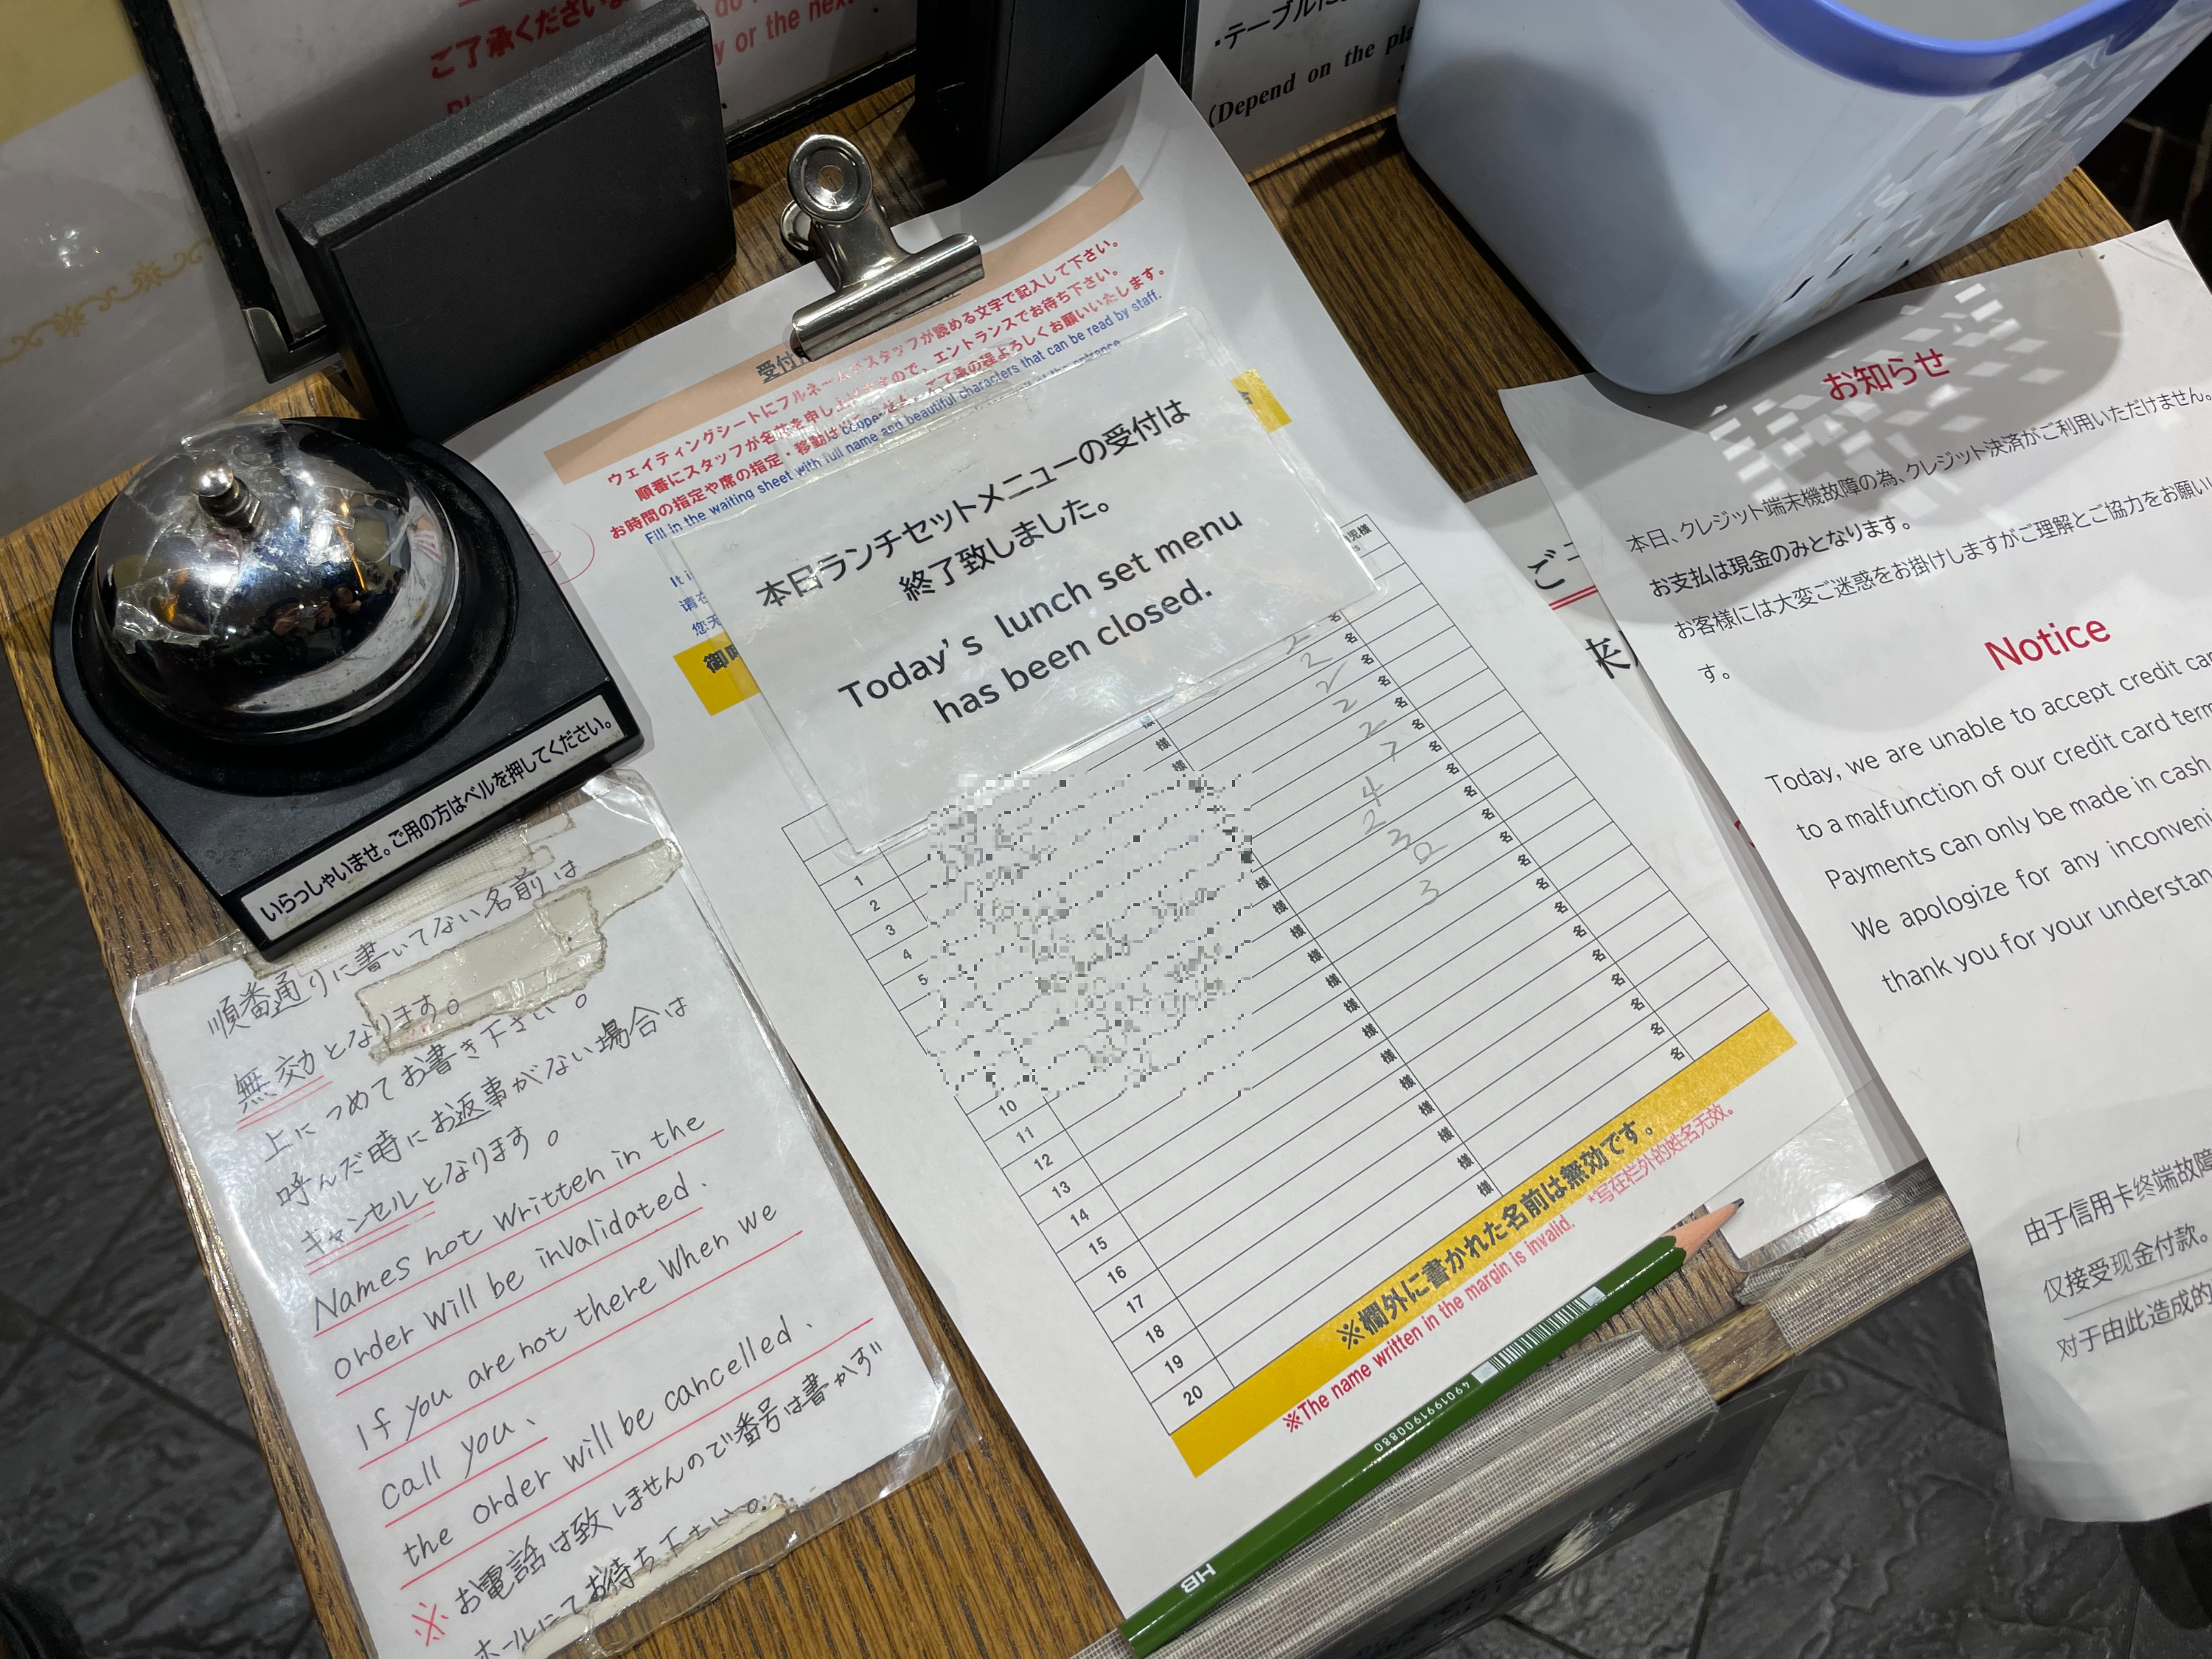 ご了承ください
or the next
・テーブルに
(Depend on the
受付
ウェイティングシートにフルネームでスタッフが読める文字で記入して下さい。
順番にスタッフが名前を申し上げますので、エントランスでお待ち下さい。
お時間の指定や席の指定・移動は
ご了承の程よろしくお願いいたします。
Fill in the waiting sheet with full name and beautiful characters that can be read by staff.
本日ランチセットメニューの受付は
終了致しました。
Today's lunch set menu
has been closed.
様
名
2
2
2
2
2
4
2
3
2
3
1
2
3
4
5
10
11
12
13
14
15
16
17
18
19
20
※欄外に書かれた名前は無効です。
※The name written in the margin is invalid.
*写在栏外的姓名无效。
HB
4901991900880
いらっしゃいませ。ご用の方はベルを押してください。
順番通りに書いてない名前は
無効となります。
上につめてお書き下さい。
呼んだ時にお返事がない場合は
キャンセルとなります。
Names not written in the
order will be invalidated.
If you are not there When we
call you、
the order will be cancelled.
※お電話は致しませんので番号は書かず
ホールにてお待ち下さい。
お知らせ
本日、クレジット端末機故障の為、クレジット決済がご利用いただけません。
お支払は現金のみとなります。
お客様には大変ご迷惑をお掛けしますがご理解とご協力をお願い
す。
Notice
Today, we are unable to accept credit
to a malfunction of our credit card
Payments can only be made in cash
We apologize for any
thank you for your
由于信用卡终端故障
仅接受现金付款。
对于由此造成的